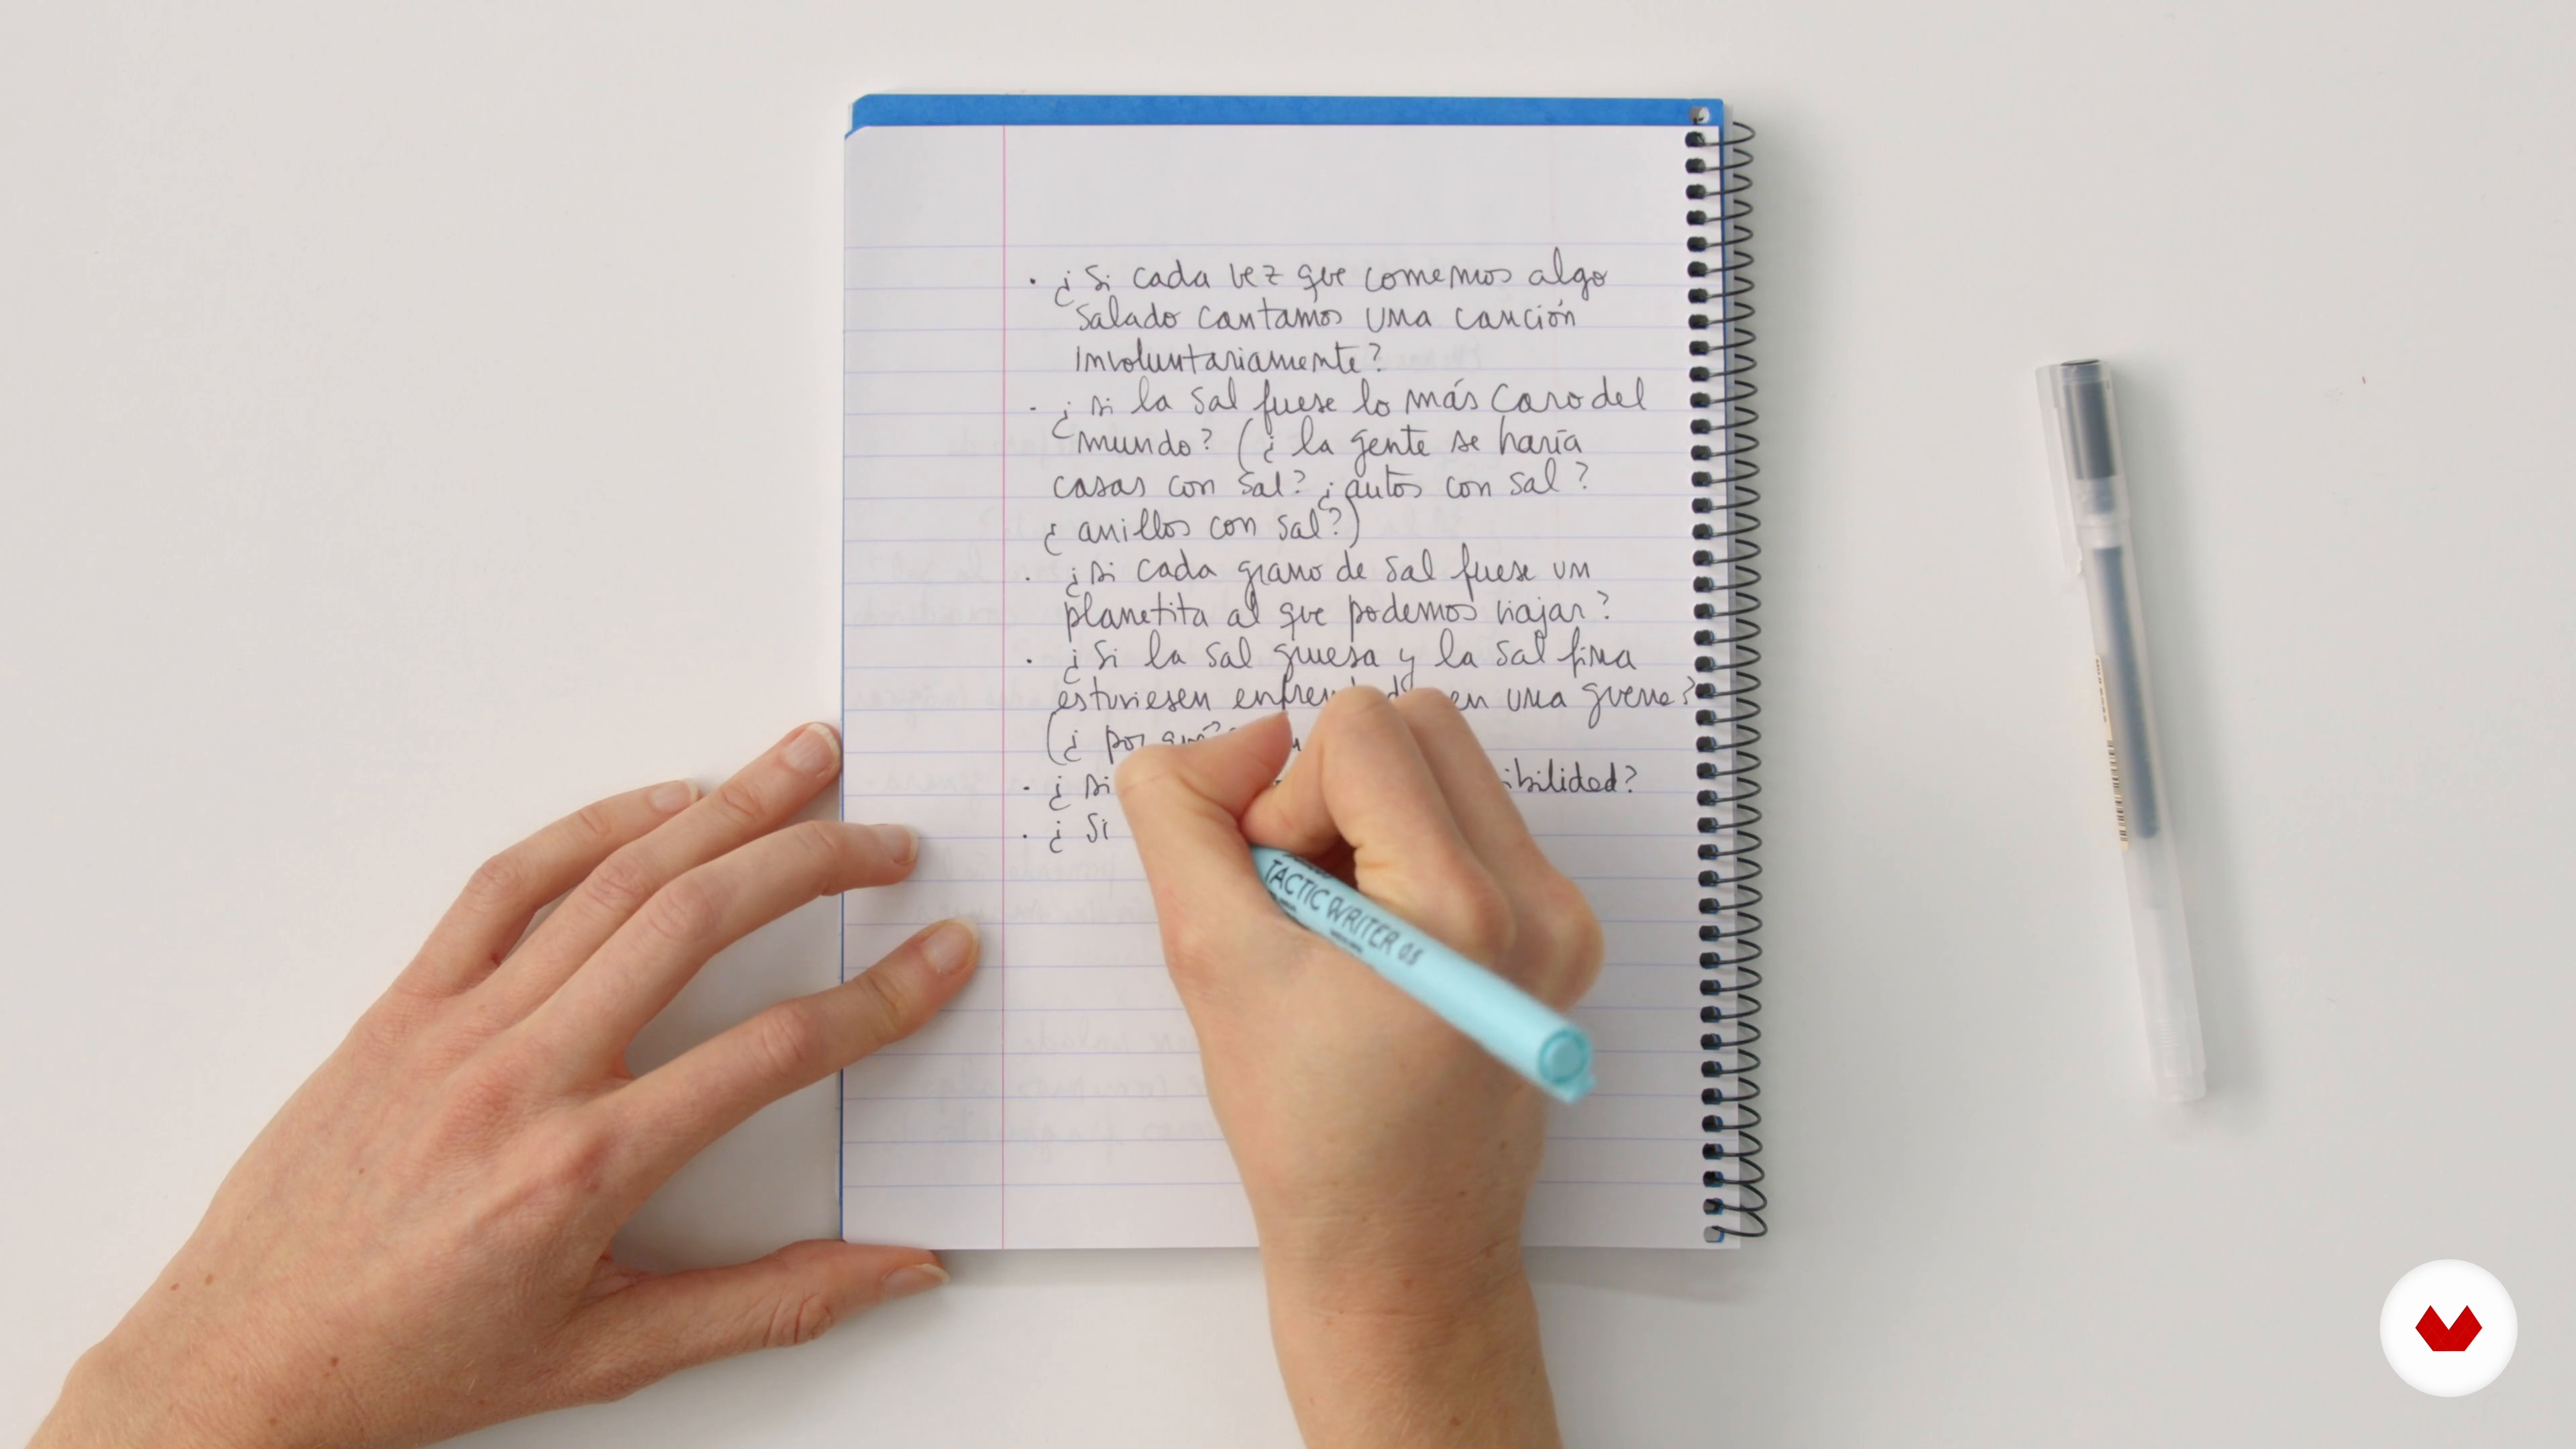 · ¿Si cada vez que comemos algo
salado cantamos una canción
involuntariamente?
· ¿si la sal fuese lo más caro del
mundo? (¿la gente se haría
casas con sal? ¿autos con sal?
¿anillos con sal?)
· ¿si cada grano de sal fuese un
planetita al que podemos viajar?
· ¿Si la sal gruesa y la sal fina
estuviesen en una guerra?
(¿por qué?
· ¿si
· ¿Si
TACTIC WRITER 05